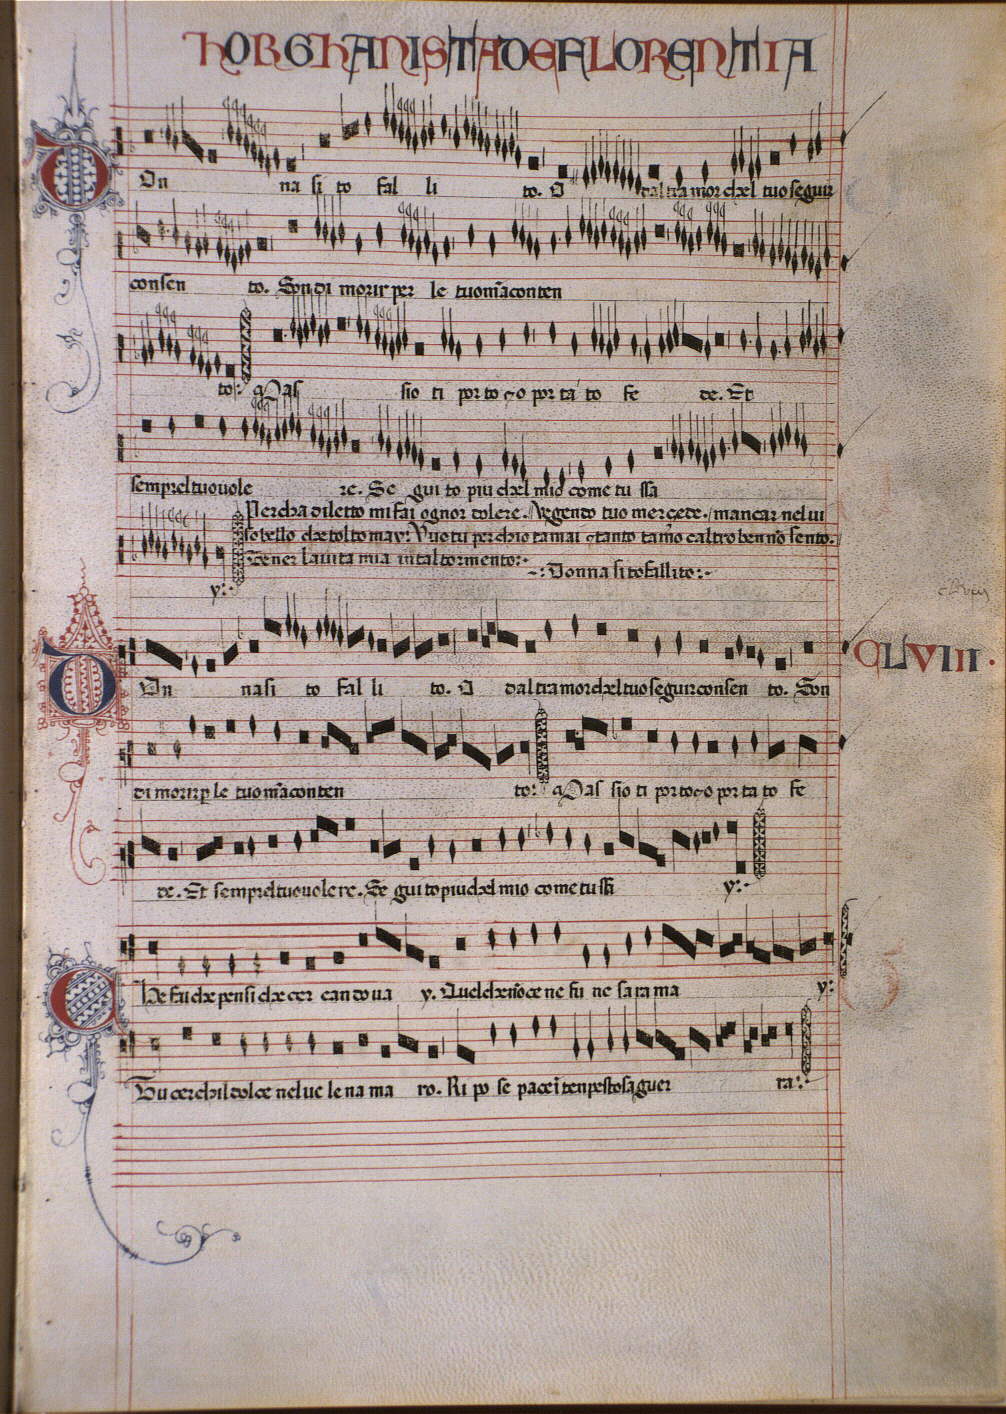 HORGHANISTA DE FLORENTIA
Don na si to fal li to. O dal tra mor chel tuo seguir
consen to. Son di morir per le tuo mācon ten
to: Mas sio ti por to o por ta to fe de. Et
sempreltuouole re. Se gui to piu chel mio come tu ssa
Percha diletto mi fai ognor dolere. Vegendo tuo merçede. mancar nel vi
so bello che tolto may.
Tener la uita mia in tal tormento:
y: Donna si to fallito:
Don na si to fal li to. O dal tra mor chel tuo seguir consen to. Son
CLVIII
di morir p le tuo mācon ten to: Mas sio ti por to o por ta to fe
de. Et sempreltuouole re. Se gui to piu chel mio come tu ssa y:
Che fai che pensi che cer can do ua y. Quel che nō ce ne fu ne sa ra ma y:
Tu cerchil dolce nel ue le na ma ro. Ri po se pace ī tenpestosa guer ra: